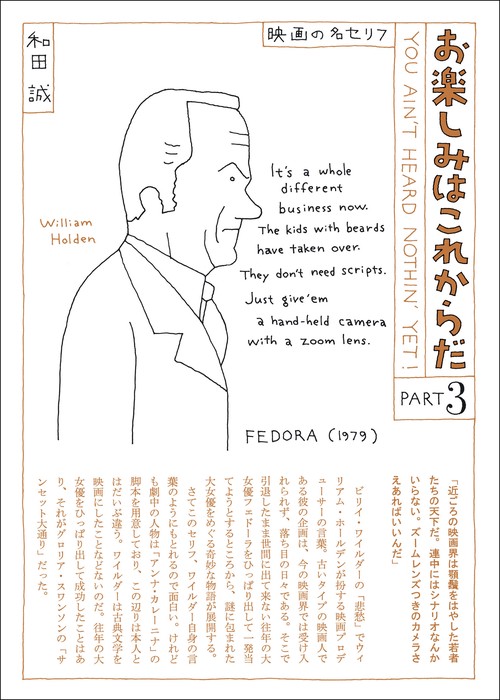 お楽しみはこれからだ
YOU AIN'T HEARD NOTHIN' YET!
PART3
映画の名セリフ
和田
誠
William
Holden
It's a whole
different
business now.
The kids with beards
have taken over.
They don't need scripts.
Just give'em
a hand-held camera
with a zoom lens.
FEDORA (1979)
「近ごろの映画界は顎鬚をはやした若者
たちの天下だ。連中にはシナリオなんか
いらない。ズームレンズつきのカメラさ
えあればいいんだ」
ビリイ・ワイルダーの「悲愁」でウィ
リアム・ホールデンが扮する映画プロデ
ューサーの言葉。古いタイプの映画人で
ある彼の企画は、今の映画界では受け入
れられず、落ち目の日々である。そこで
引退したまま世間に出て来ない往年の大
女優フェドーラをひっぱり出して一発当
てようとするところから、謎に包まれた
大女優をめぐる奇妙な物語が展開する。
さてこのセリフ、ワイルダー自身の言
葉のようにもとれるので面白い。けれど
も劇中の人物は「アンナ・カレーニナ」の
脚本を用意しており、この辺りは本人と
はだいぶ違う。ワイルダーは古典文学を
映画にしたことなどないのだ。往年の大
女優をひっぱり出して成功したことはあ
り、それがグロリア・スワンソンの「サ
ンセット大通り」だった。